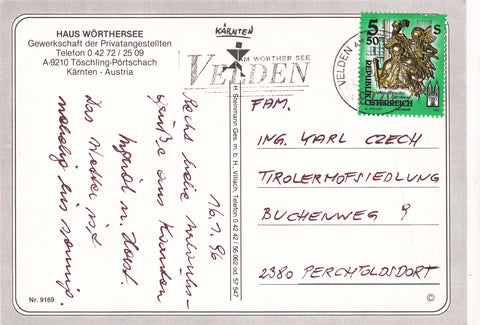 HAUS WÖRTHERSEE
Gewerkschaft der Privatangestellten
Telefon 0 42 72 / 25 09
A-9210 Töschling-Pörtschach
Kärnten - Austria
KÄRNTEN
AM WÖRTHER SEE
VELDEN
VELDEN
5 50 S
REPUBLIK
ÖSTERREICH
16.1.96
Recht liebe Urlaubs-
grüße aus Kärnten
Ingrid u. Horst.
Das Wetter ist
neblig bis sonnig.
H. Steinmann Ges. m. b. H., Villach, Telefon 0 42 42 / 56 062 od. 57 547
FAM.
ING. KARL CZECH
TIROLERHOFSIEDLUNG
BUCHENWEG 9
2380 PERCHTOLDSDORF
Nr. 9169
©